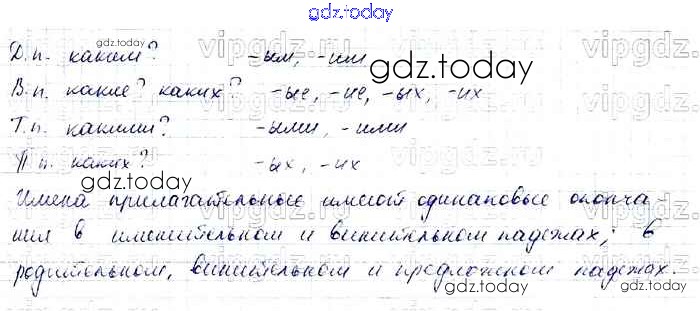 gdz.today
Д.п. каким? -ым, -им
В.п. какие? каких? -ые, -ие, -ых, -их
Т.п. какими? -ыми, -ими
П.п. каких? -ых, -их
Имена прилагательные имеют одинаковые оконча-
ния в именительном и винительном падежах; в
родительном, винительном и предложном падежах.
gdz.today
gdz.today
gdz.today
gdz.today
gdz.today
vipgdz.ru
vipgdz.ru
vipgdz.ru